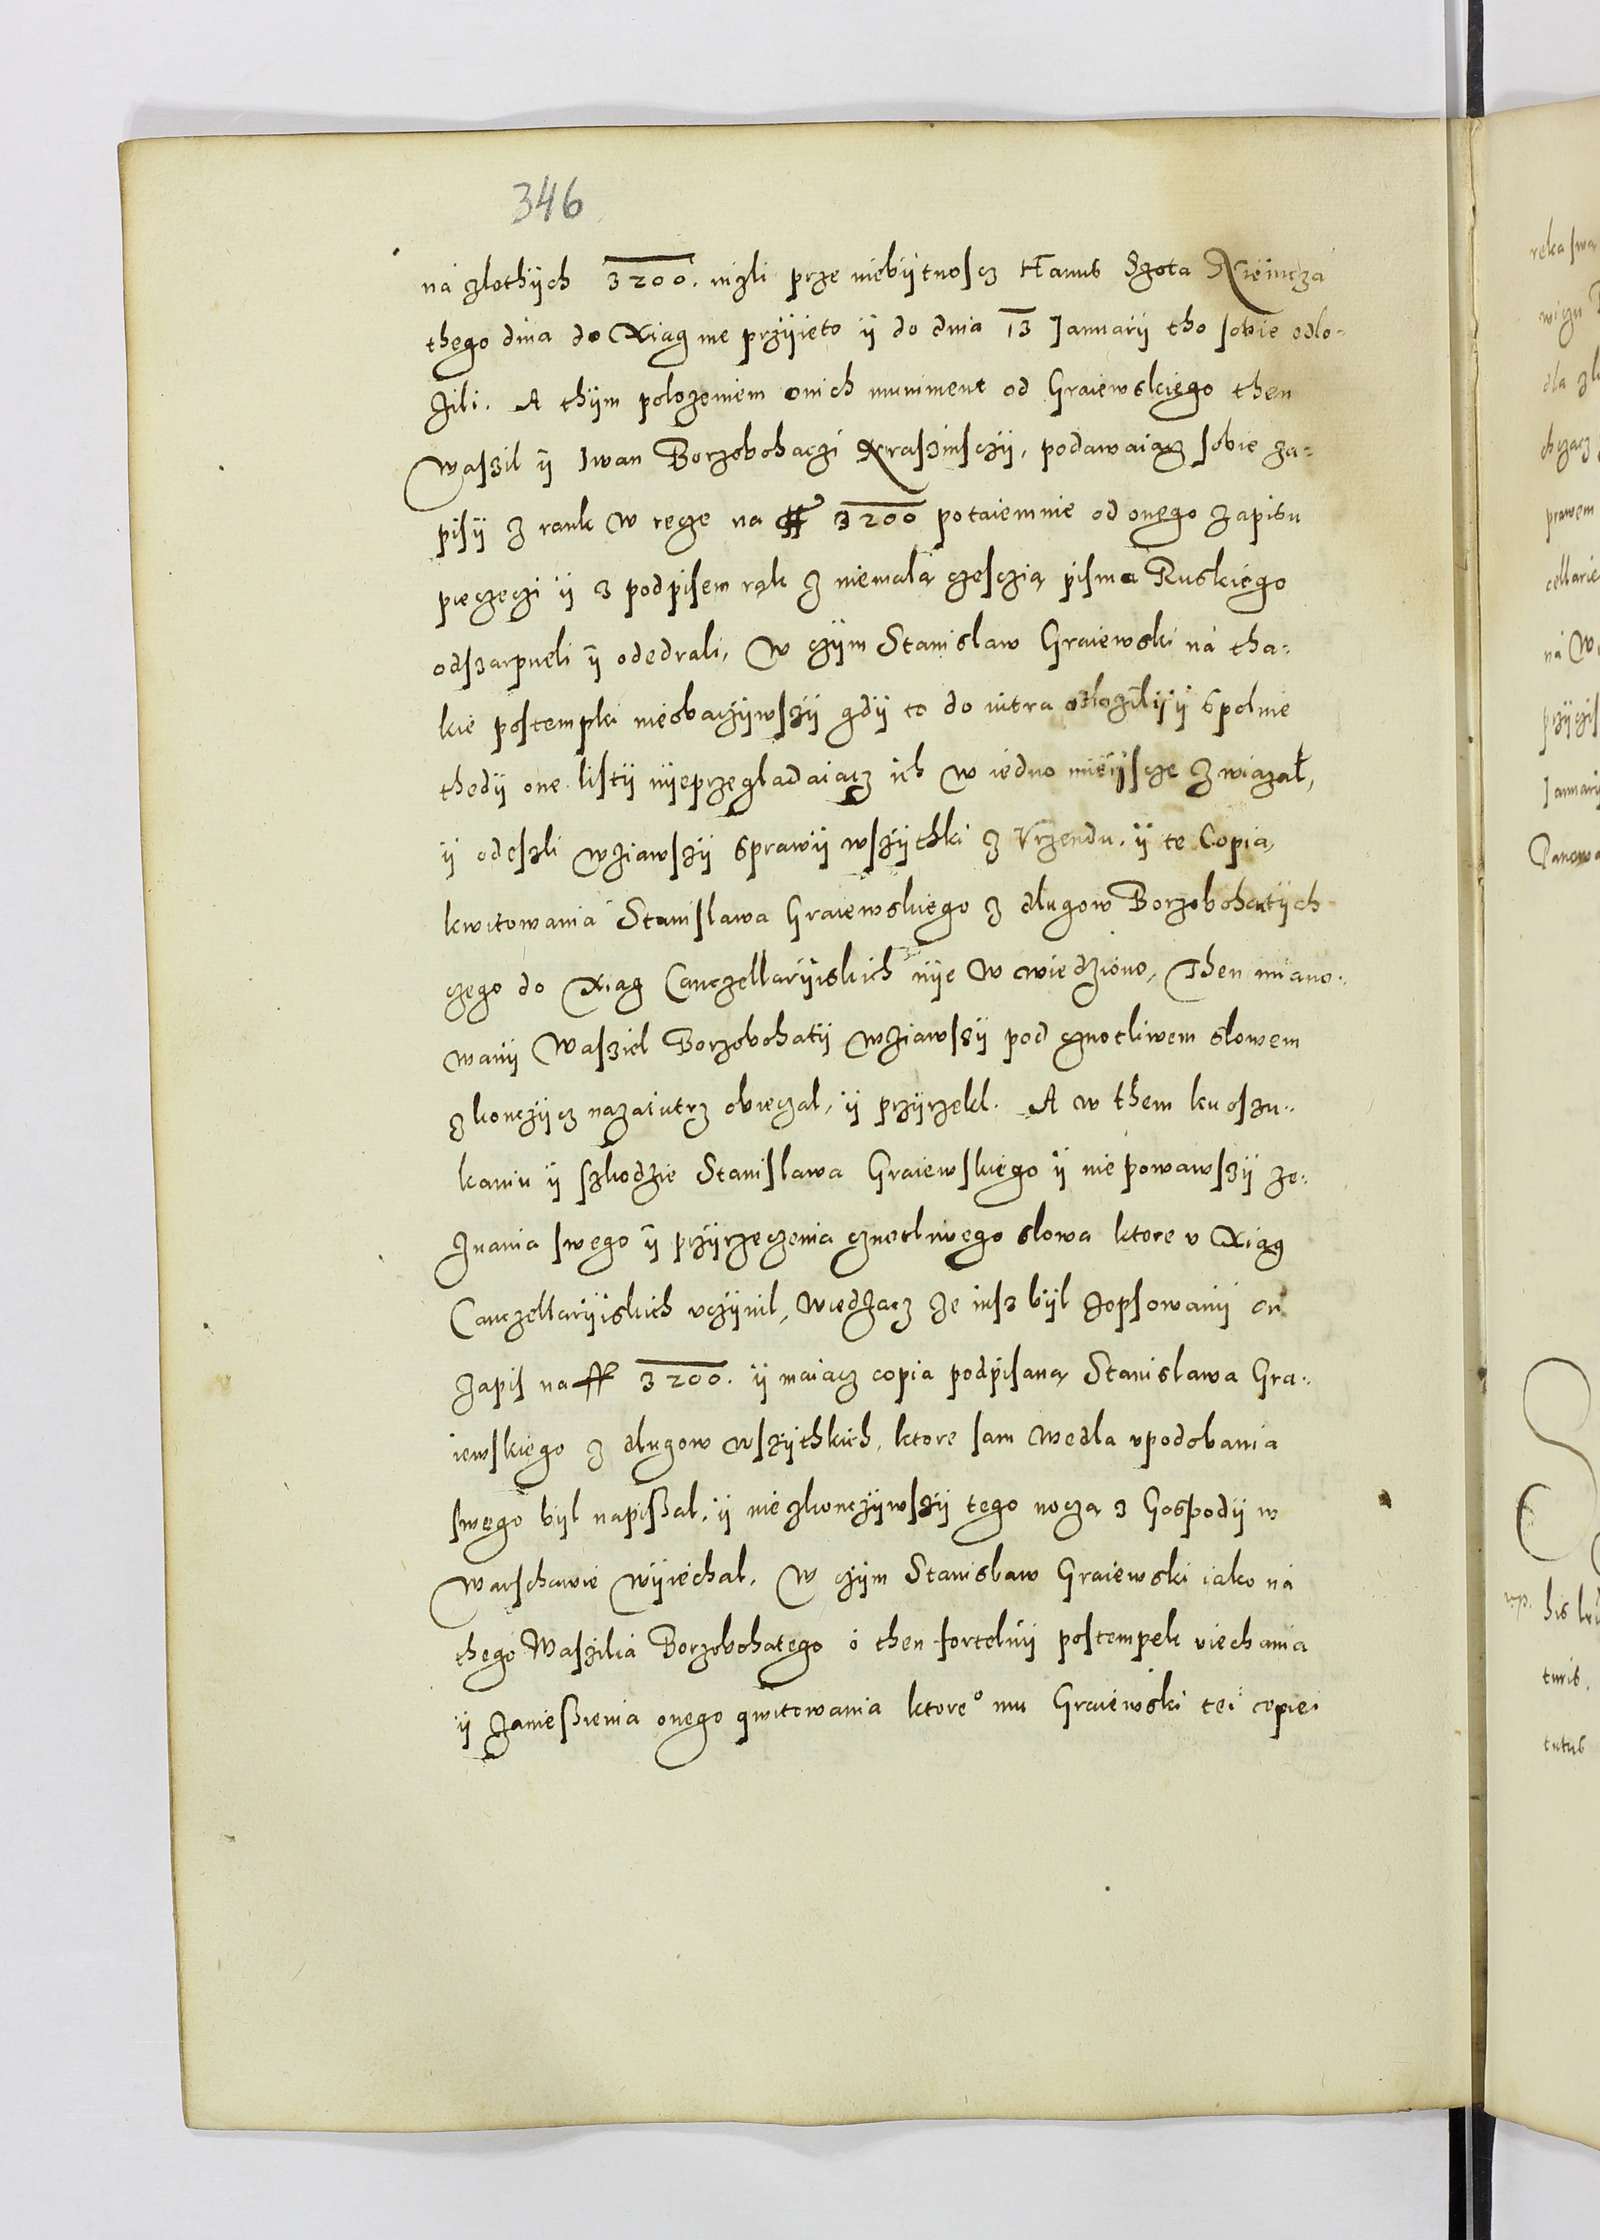 346
na zlothÿch 3200. nizli prze niebÿtnoscz Hanus Szota Niemcza
thego dnia do Xiag nie przÿieto ÿ do dnia 13 Januarÿ tho sobie odlo-
zili. A thÿm polozeniem onich muniment od Graiewskiego then
Waszil ÿ Iwan Borzobohaczi Kraszinsczÿ, podawaiącz sobie za-
pisÿ z rank w ręcze na ff 3200 potaiemnie od onego zapisu
pieczęczi ÿ z podpisem rąk z niemalą czesczią pisma Ruskiego
odszarpneli ÿ odedrali, W czÿm Stanislaw Graiewski na tha-
kie postempki nieobaczÿwszÿ gdÿ to do iutra odlozilÿ ÿ spolnie
thedÿ one listÿ nÿeprzegladaiącz ich w iedno mieÿscze zwiazał,
ÿ odeszli wziawszÿ sprawÿ wszÿthki z Vrzendu. ÿ te Copią,
kwitowania Stanislawa Graiewskiego z dlugow Borzobohatÿch
czego do Xiąg Canczellarÿiskich nÿe w wiedziono, Then miano-
wanÿ Waszil Borzobohatÿ wziawszÿ pod cznotliwem slowem
zkonczÿcz nazaiutrz obieczal, ÿ przÿrzekl. A w them ku oszu-
kaniu ÿ szkodzie Stanislawa Graiewskiego ÿ nie powawszÿ ze-
znania swego ÿ przÿrzeczenia cznotliwego slowa ktore v Xiąg
Canczellarÿiskich vczÿnil, wiedzącz ze iusz bÿl zopsowanÿ on
zapis na ff 3200. ÿ maiącz copia podpisaną Stanislawa Gra-
iewskiego z dlugow wszÿthkich, ktore sam wedla vpodobania
swego bÿl napissal. ÿ nie zkonczÿwszÿ tego noczą z Gospodÿ w
Warschawie wÿiechal. W czÿm Stanislaw Graiewski iako na
thego Waszilia Borzobohatego o then fortelnÿ postempek viechania
ÿ zaniessienia onego qwitowania ktore° mu Graiewski tei copiei